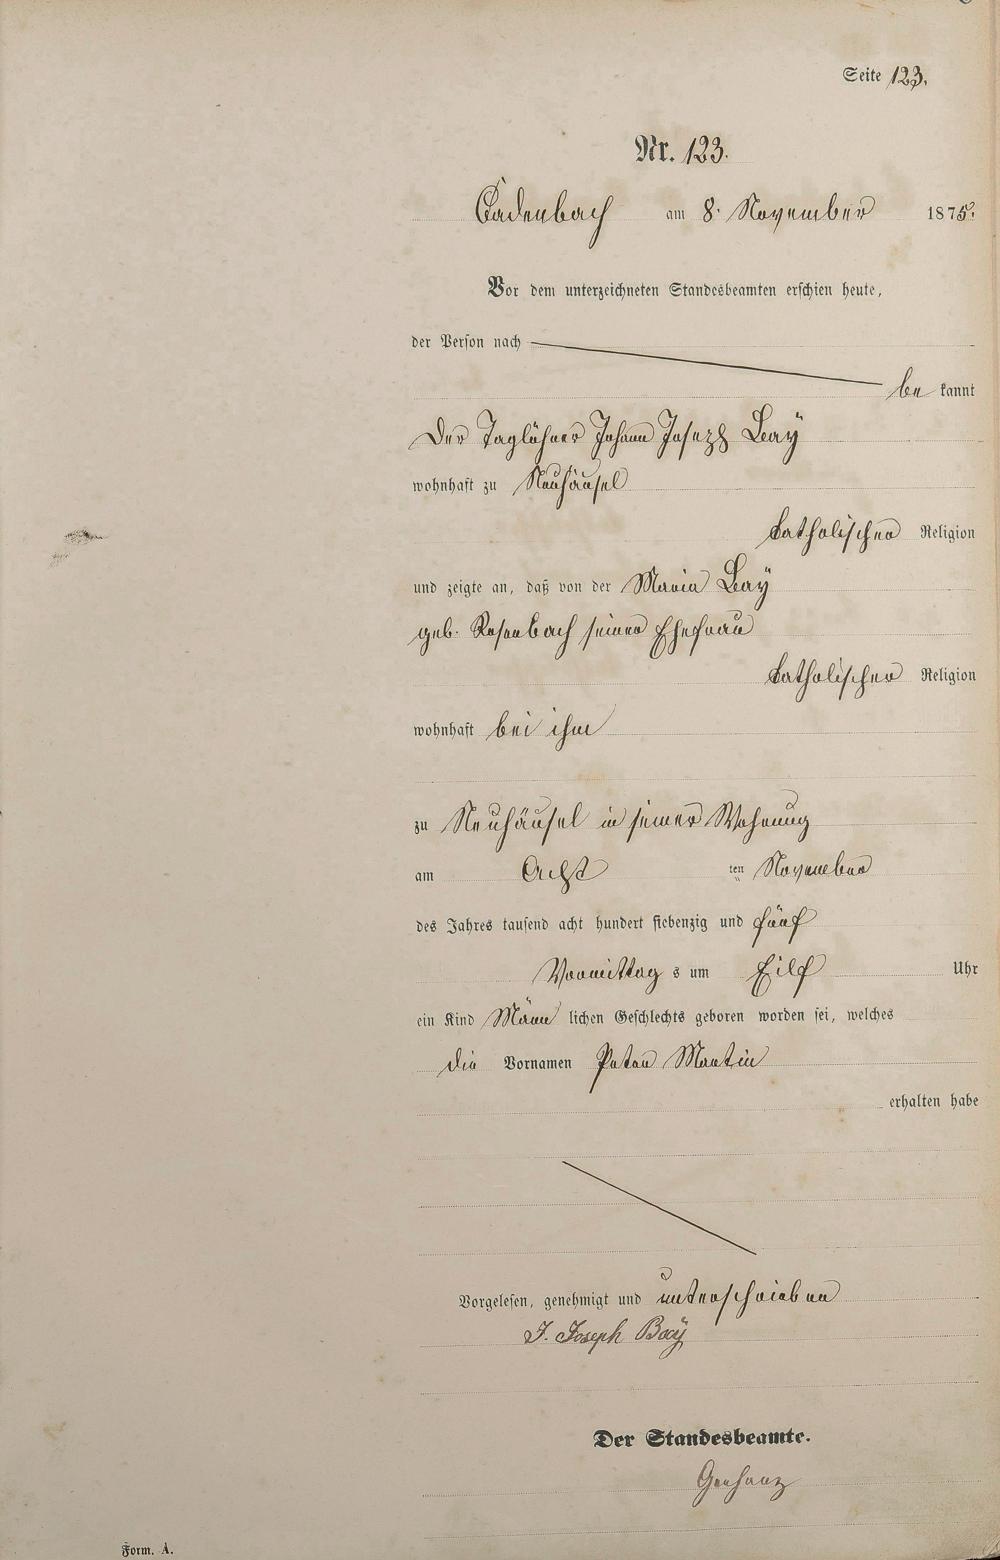 Seite 123.
Nr. 123.
Cadenbach am 8. November 1875.
Vor dem unterzeichneten Standesbeamten erschien heute,
der Person nach
be kannt
Der Taglöhner Johann Joseph Bay
wohnhaft zu Neuhäusel
katholischer Religion
und zeigte an, daß von der Maria Bay
geb. Rosenbach seiner Ehefrau
katholischer Religion
wohnhaft bei ihm
zu Neuhäusel in seiner Wohnung
am Acht ten November
des Jahres tausend acht hundert siebenzig und fünf
Vormittag s um Eilf Uhr
ein Kind Männ lichen Geschlechts geboren worden sei, welches
die Vornamen Peter Martin
erhalten habe
Vorgelesen, genehmigt und unterschrieben
J. Joseph Baÿ
Der Standesbeamte.
Form. A.